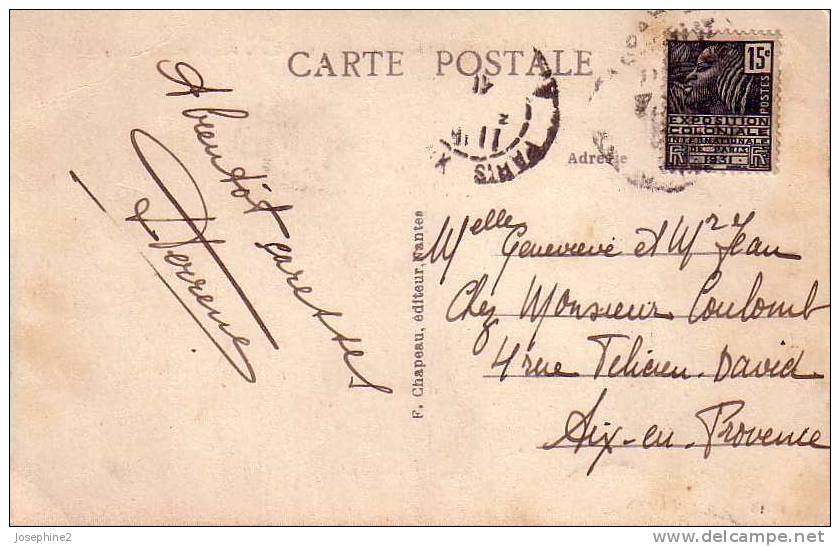 CARTE POSTALE
A bientôt
caresses
Pierrene
PARIS X
11
Adresse
15c
POSTES
EXPOSITION
COLONIALE
INTERNATIONALE
PARIS
1931
F. Chapeau, éditeur, Nantes
Melle Geneviève et Mr Jean
Chez Monsieur Coulomb
4 rue Félicien-David
Aix-en-Provence
Josephine2
delcampe.net